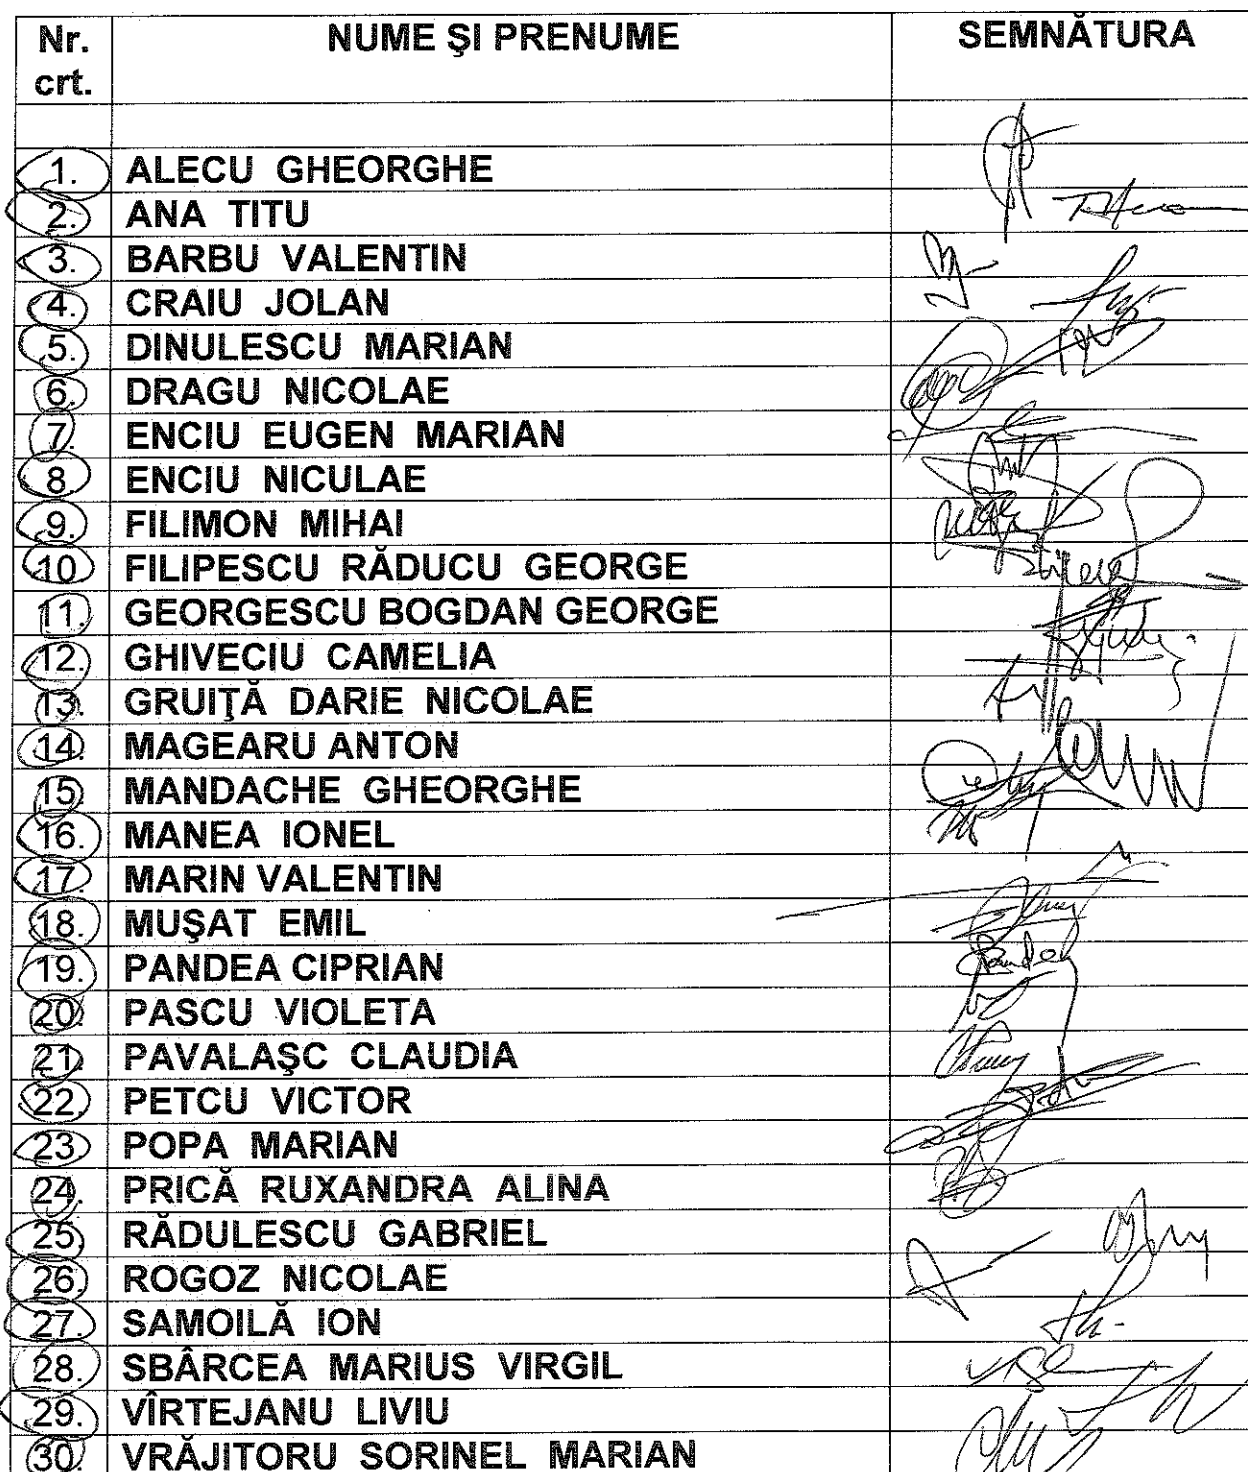 Nr. crt. NUME ŞI PRENUME SEMNĂTURA
1. ALECU GHEORGHE
2. ANA TITU
3. BARBU VALENTIN
4. CRAIU JOLAN
5. DINULESCU MARIAN
6. DRAGU NICOLAE
7. ENCIU EUGEN MARIAN
8. ENCIU NICULAE
9. FILIMON MIHAI
10 FILIPESCU RĂDUCU GEORGE
11. GEORGESCU BOGDAN GEORGE
12. GHIVECIU CAMELIA
13. GRUIŢĂ DARIE NICOLAE
14. MAGEARU ANTON
15 MANDACHE GHEORGHE
16. MANEA IONEL
17. MARIN VALENTIN
18. MUŞAT EMIL
19. PANDEA CIPRIAN
20. PASCU VIOLETA
21. PAVALAŞC CLAUDIA
22. PETCU VICTOR
23 POPA MARIAN
24. PRICĂ RUXANDRA ALINA
25. RĂDULESCU GABRIEL
26. ROGOZ NICOLAE
27. SAMOILĂ ION
28. SBÂRCEA MARIUS VIRGIL
29. VÎRTEJANU LIVIU
30. VRĂJITORU SORINEL MARIAN